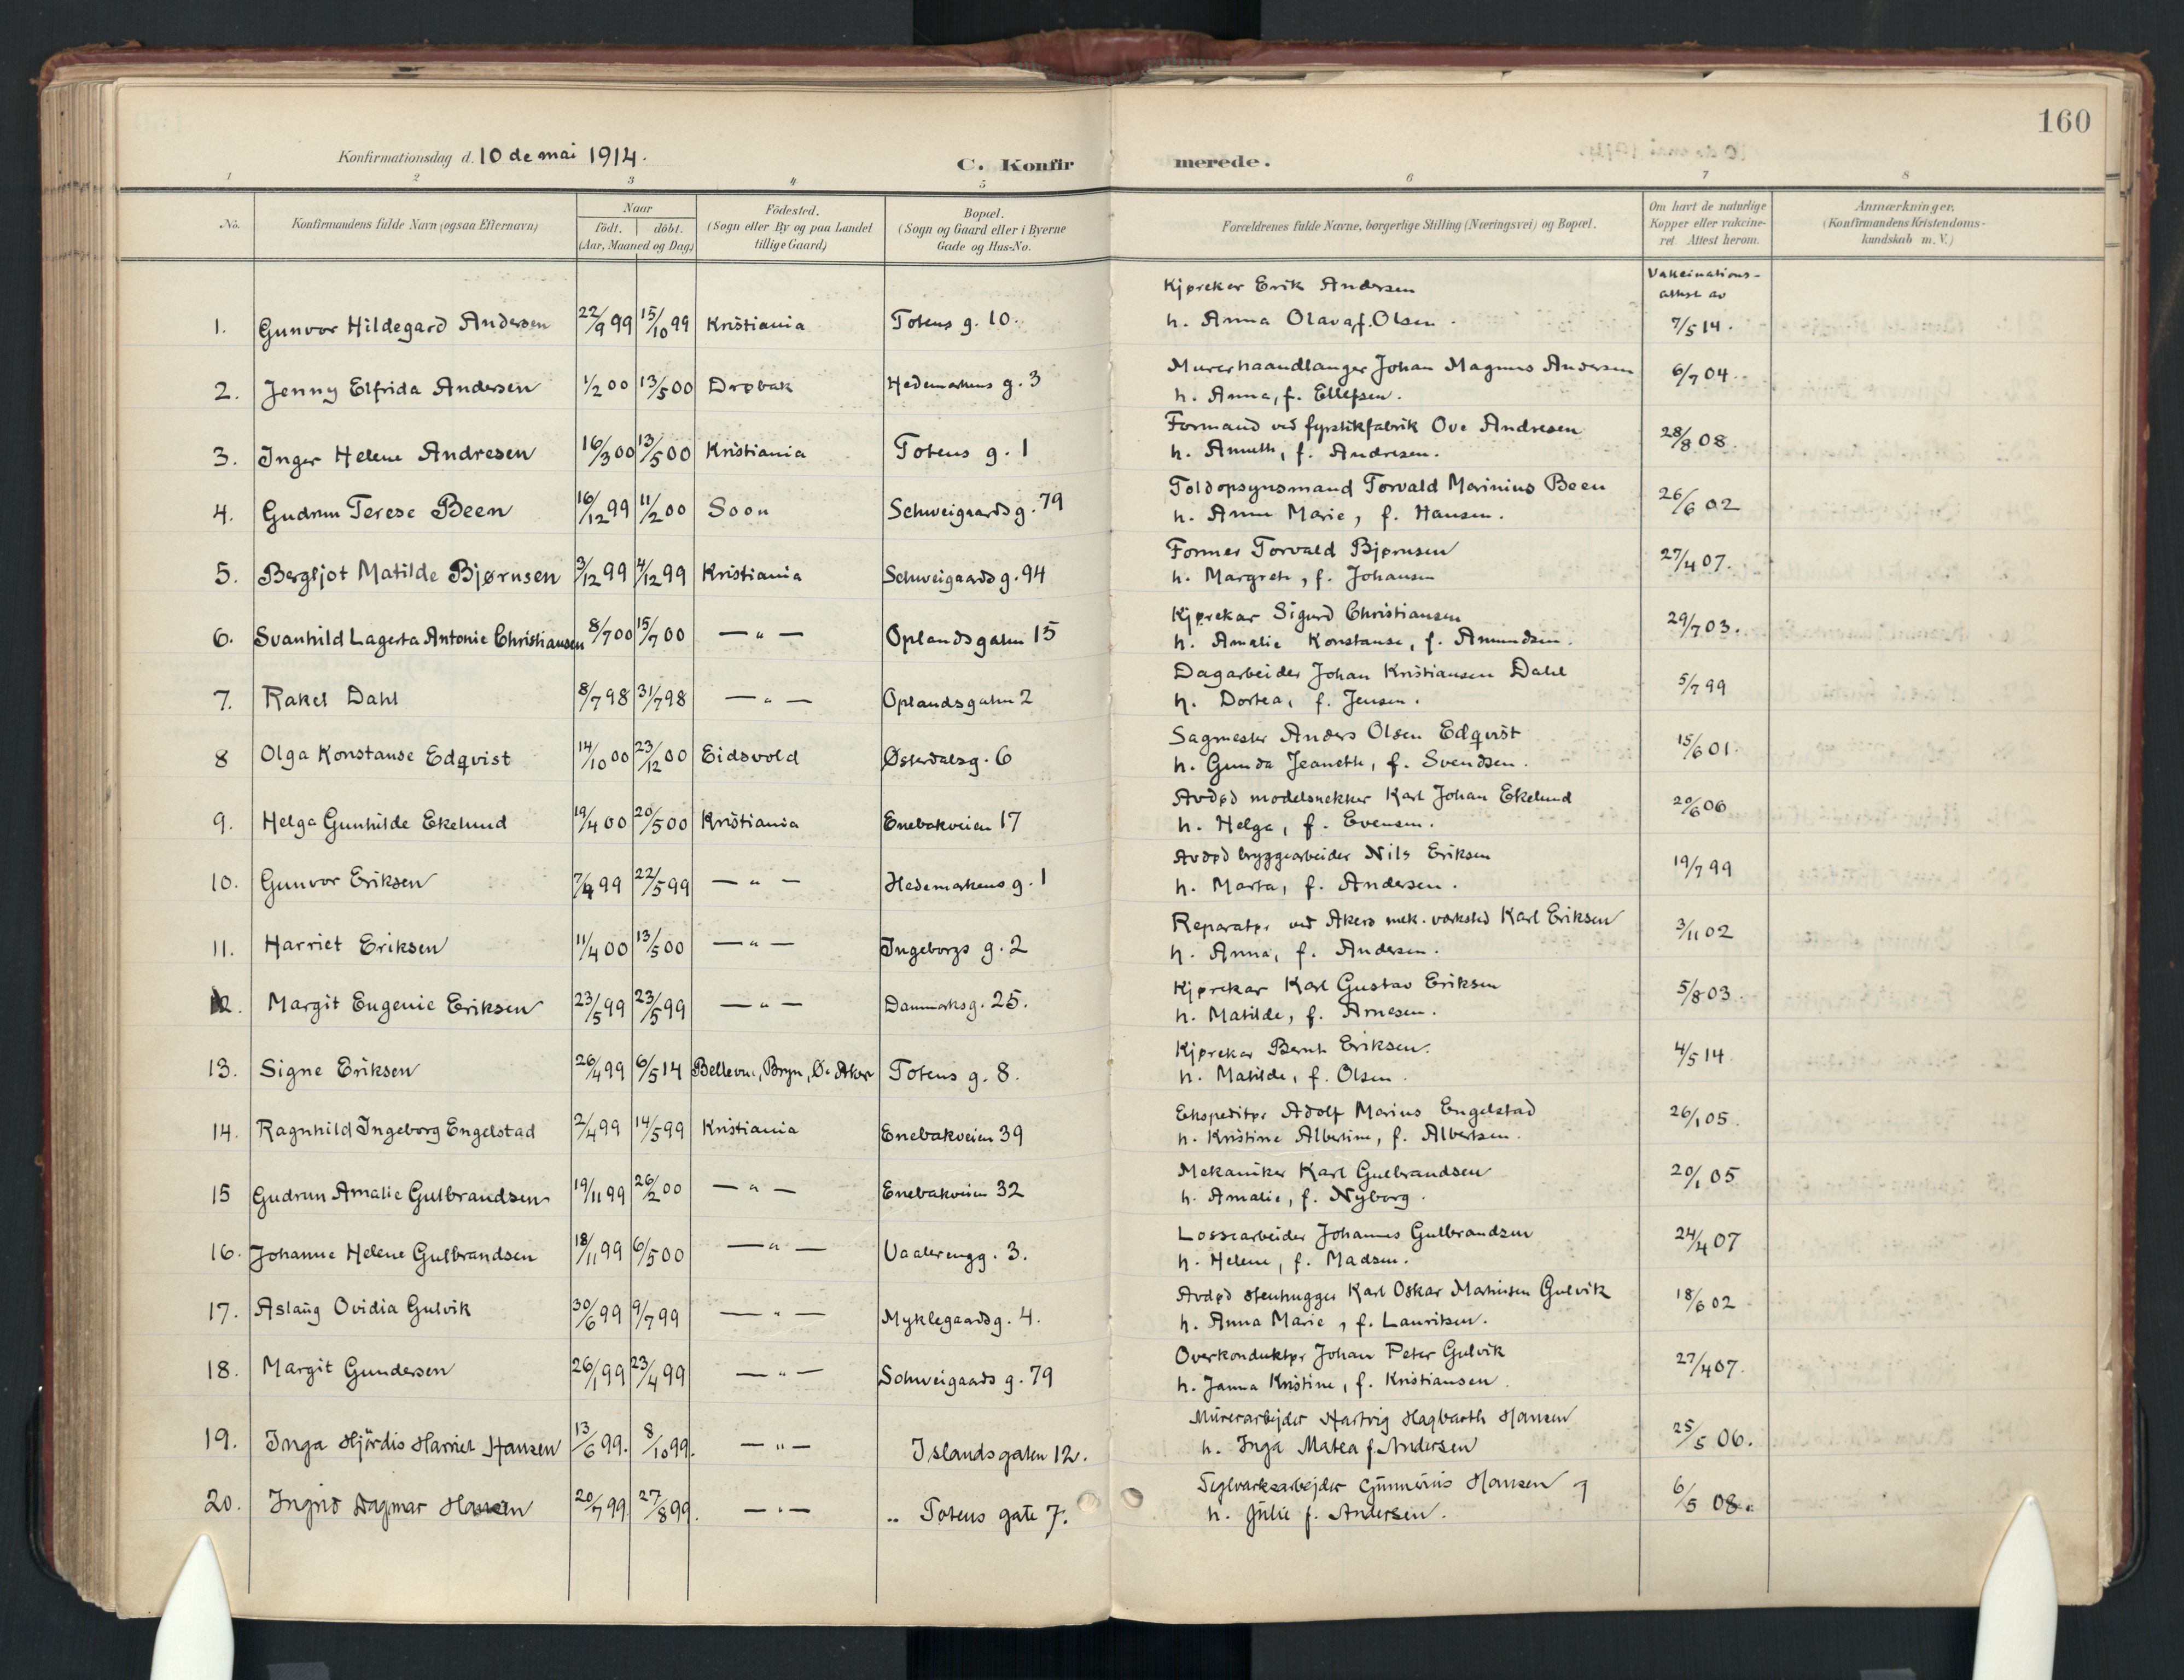 160
Konfirmationsdag d. 10 de mai 1914.
C. Konfir merede.
1 2 3 4 5 6 7 8
No.
Konfirmandens fulde Navn (ogsaa Efternavn)
Naar
födt. döbt.
(Aar, Maaned og Dag)
Födested.
(Sogn eller By og paa Landet
tillige Gaard)
Bopæl.
(Sogn og Gaard eller i Byerne
Gade og Hus-No.
Forældrenes fulde Navne, borgerlige Stilling (Næringsvei) og Bopæl.
Om havt de naturlige
Kopper eller vakcine-
ret. Attest herom.
Anmærkninger,
(Konfirmandens Kristendoms-
kundskab m. V.)
Vakcinations-
attest av
Kjørekar Erik Andersen
1. Gunvor Hildegard Andersen 22/9 99 15/10 99 Kristiania Totens g. 10. h. Anna Olava f. Olsen. 7/5 14.
Murerhaandlanger Johan Magnus Andersen
2. Jenny Elfrida Andersen 1/2 00 13/5 00 Drøbak Hedemarkens g. 3 h. Anna, f. Ellefsen. 6/7 04.
Formand ved fyrstikfabrik Ove Andresen
3. Inger Helene Andresen 16/3 00 13/5 00 Kristiania Totens g. 1 h. Anneth, f. Andresen. 28/8 08.
Toldopsynsmand Torvald Marinius Been
4. Gudrun Terese Been 16/12 99 11/2 00 Soon Schweigaards g. 79 h. Anne Marie, f. Hansen. 26/6 02
Former Torvald Bjørnsen
5. Bergljot Matilde Bjørnsen 3/12 99 4/12 99 Kristiania Schweigaards g. 94 h. Margrete, f. Johansen 27/4 07.
Kjørekar Sigurd Christiansen
6. Svanhild Lagerta Antonie Christiansen 8/7 00 15/7 00 — " — Oplandsgaten 15 h. Amalie Konstanse, f. Amundsen. 29/7 03.
Dagarbeider Johan Kristiansen Dahl
7. Rakel Dahl 8/7 98 31/7 98 — " — Oplandsgaten 2 h. Dortea, f. Jensen. 5/7 99
Sagmester Anders Olsen Edqvist
8 Olga Konstanse Edqvist 14/10 00 23/12 00 Eidsvold Østerdalsg. 6 h. Gunda Jeanette, f. Svendsen. 15/6 01.
Avdød modelsnekker Karl Johan Ekelund
9. Helga Gunhilde Ekelund 19/4 00 20/5 00 Kristiania Enebakveien 17 h. Helga, f. Evensen. 20/6 06
Avdød bryggearbeider Nils Eriksen
10. Gunvor Eriksen 7/4 99 22/5 99 — " — Hedemarkens g. 1 h. Marta, f. Andersen. 19/7 99
Reparatør ved Akers mek. værksted Karl Eriksen
11. Harriet Eriksen 11/4 00 13/5 00 — " — Ingeborgs g. 2 h. Anna, f. Andersen. 3/11 02
Kjørekar Karl Gustav Eriksen
12. Margit Eugenie Eriksen 23/5 99 23/5 99 — " — Danmarksg. 25. h. Matilde, f. Arnesen. 5/8 03.
Kjørekar Bernt Eriksen.
13. Signe Eriksen 26/4 99 6/5 14 Bellevue, Bryn, Ø. Aker Totens g. 8. h. Matilde, f. Olsen. 4/5 14.
Ekspeditør Adolf Marius Engelstad
14. Ragnhild Ingeborg Engelstad 2/4 99 14/5 99 Kristiania Enebakveien 39 h. Kristine Albertine, f. Albertsen. 26/1 05.
Mekaniker Karl Gulbrandsen
15 Gudrun Amalie Gulbrandsen 19/11 99 26/2 00 — " — Enebakveien 32 h. Amalie, f. Nyborg. 20/1 05
Lossearbeider Johannes Gulbrandsen
16. Johanne Helene Gulbrandsen 18/11 99 6/5 00 — " — Vaalerengg. 3. h. Helene, f. Madsen. 24/4 07
Avdød stenhugger Karl Oskar Martinsen Gulvik
17. Aslaug Ovidia Gulvik 30/6 99 9/7 99 — " — Myklegaardsg. 4. h. Anna Marie, f. Lauritsen. 18/6 02
Overkonduktør Johan Peter Gulvik
18. Margit Gundersen 26/1 99 23/4 99 — " — Schweigaards g. 79 h. Janna Kristine, f. Kristiansen. 27/4 07.
Murerarbejder Hartvig Hagbarth Hansen
19. Inga Hjördis Harriet Hansen 13/6 99. 8/10 99. — " — Islandsgaten 12. h. Inga Matea f. Andersen 25/5 06.
Teglværksarbejder Gunnerius Hansen og
20. Ingrid Dagmar Hansen 20/7 99. 27/8 99. — " — " Totens gate 7. h. Julie f. Andersen. 6/5 08.